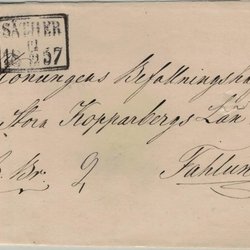 SÄTHER
12
18 11 57
Konungens Befallningsha
Stora Kopparbergs Län
Br 2 Fahlun